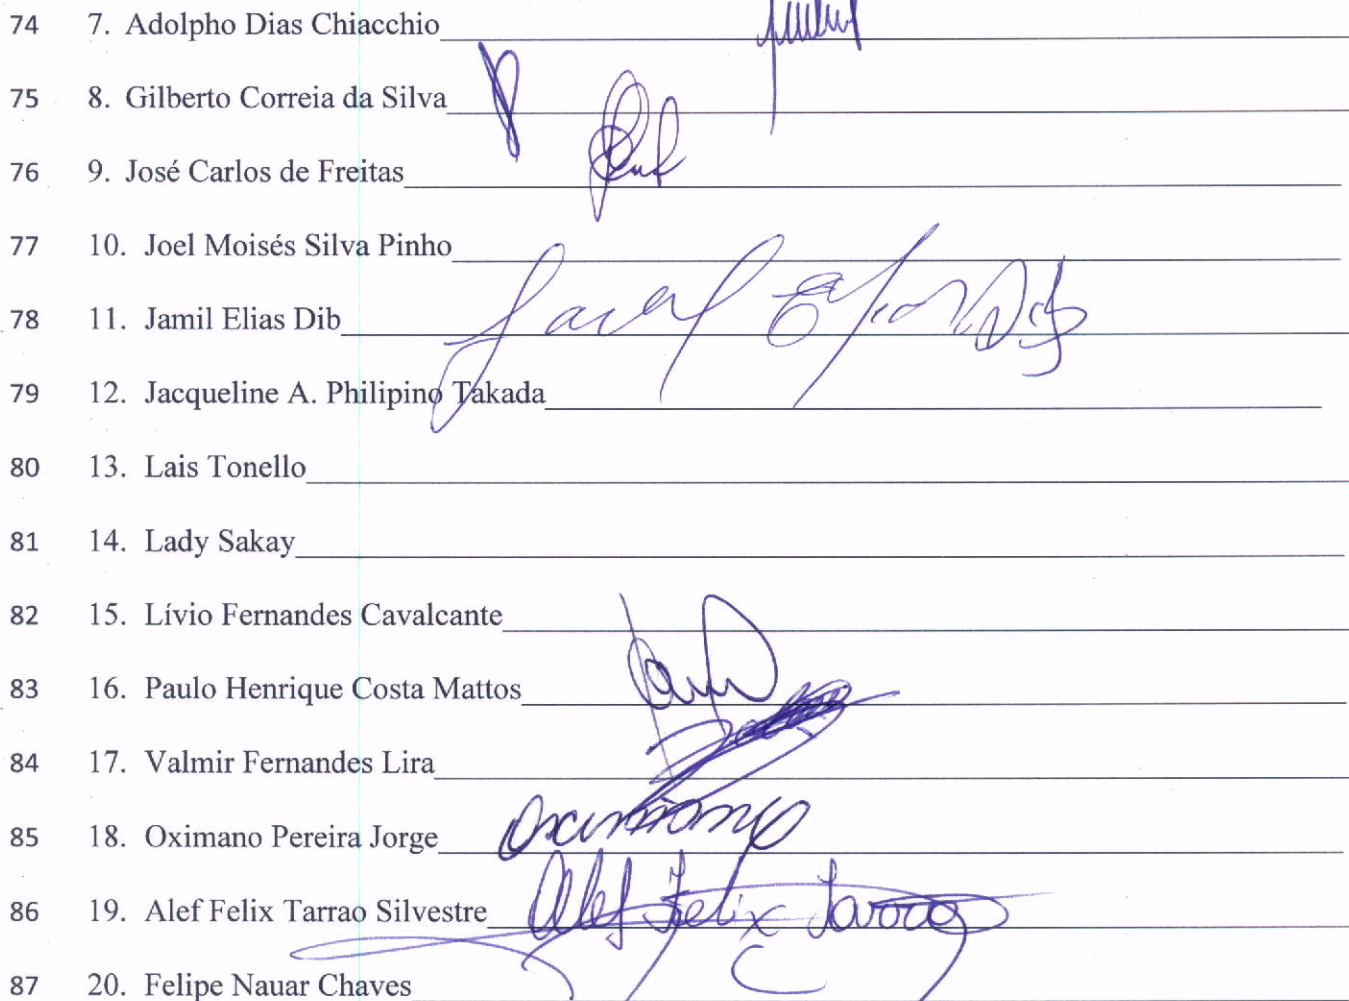 74 7. Adolpho Dias Chiacchio
75 8. Gilberto Correia da Silva
76 9. José Carlos de Freitas
77 10. Joel Moisés Silva Pinho
78 11. Jamil Elias Dib
79 12. Jacqueline A. Philipino Takada
80 13. Lais Tonello
81 14. Lady Sakay
82 15. Lívio Fernandes Cavalcante
83 16. Paulo Henrique Costa Mattos
84 17. Valmir Fernandes Lira
85 18. Oximano Pereira Jorge
86 19. Alef Felix Tarrao Silvestre Alef Felix Tarrao
87 20. Felipe Nauar Chaves